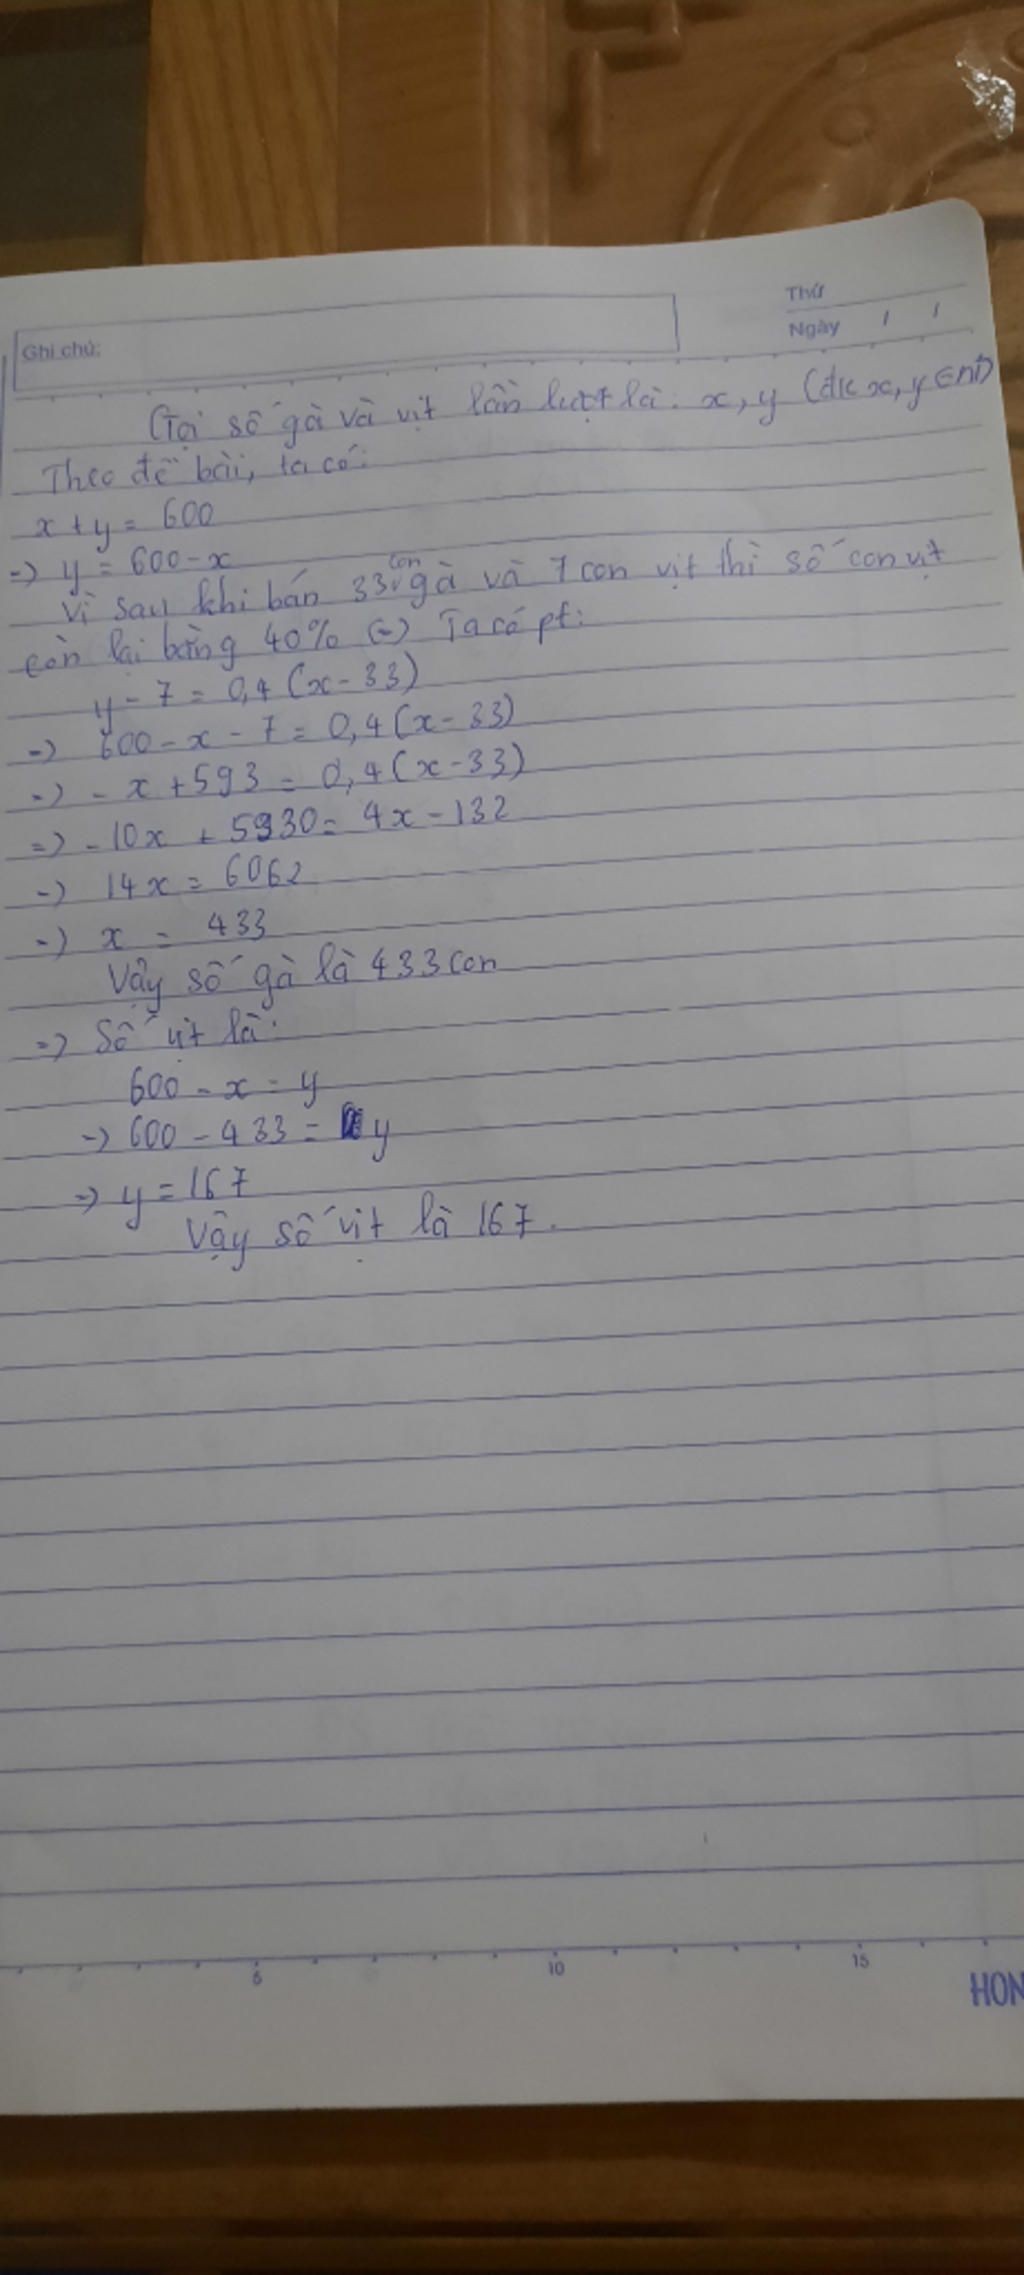 Thứ
Ghi chú:
Ngày / /
Gọi số gà và vịt lần lượt là: x, y (đk x, y ∈ N*)
Theo đề bài, ta có:
x + y = 600
=> y = 600 - x
Vì sau khi bán 33 con gà và 7 con vịt thì số con vịt
còn lại bằng 40% (=) Ta có pt:
y - 7 = 0,4 (x - 33)
=> 600 - x - 7 = 0,4 (x - 33)
=> - x + 593 = 0,4 (x - 33)
=> - 10x + 5930 = 4x - 132
=> 14x = 6062
=> x = 433
Vậy số gà là 433 con
=> Số vịt là:
600 - x = y
=> 600 - 433 = y
=> y = 167
Vậy số vịt là 167.
5 10 15
HON